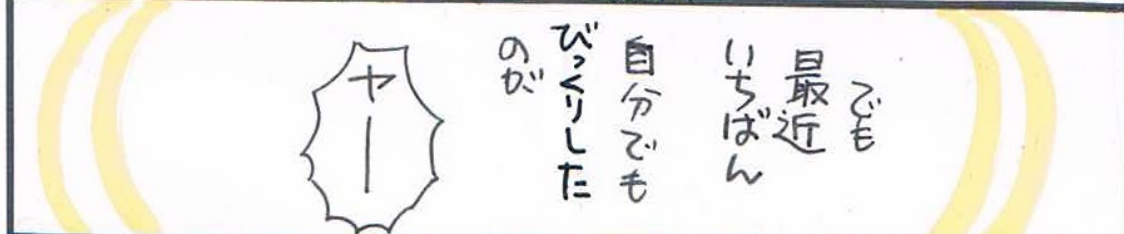 でも
最近
いちばん
自分でも
びっくりした
のが
ヤー